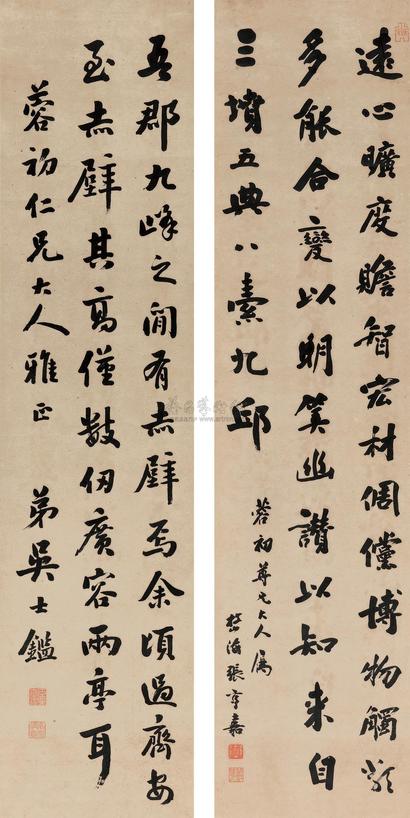 遠心曠度贍智宏材倜儻博物觸類
多能合變以明筭幽讚以知來自
三墳五典八索九邱
蓉初尊兄大人屬
張亨嘉
吾郡九峰之間有赤壁焉余頃過齊安
至赤壁其高僅數仞廣容兩亭耳
蓉初仁兄大人雅正
弟吳士鑑